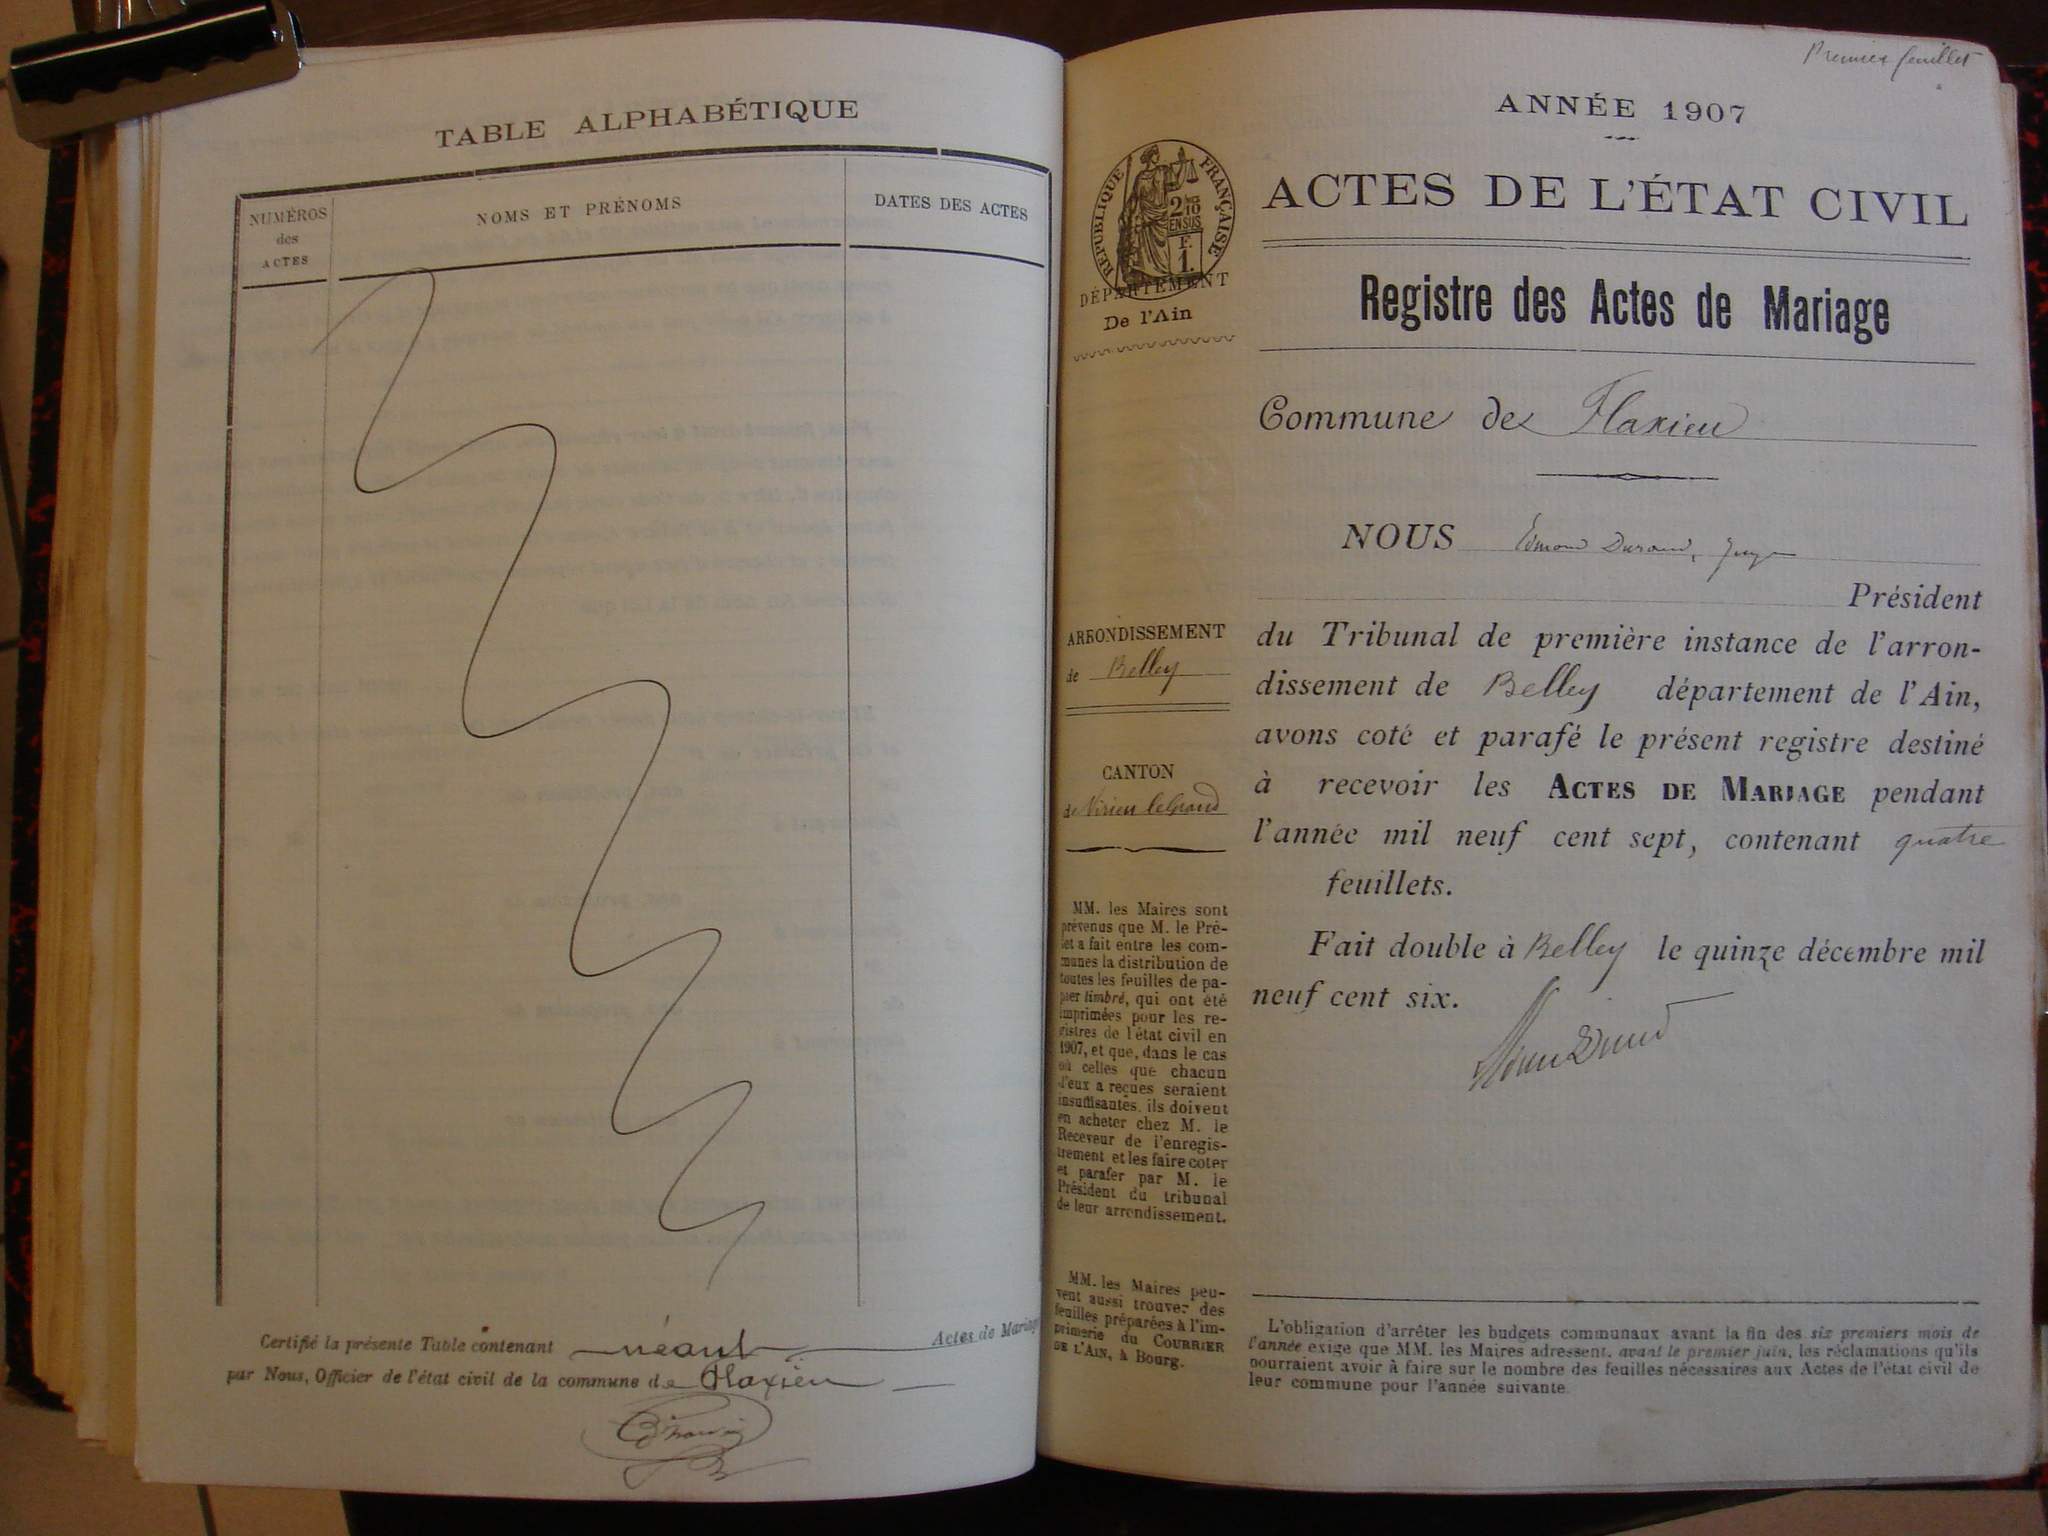 TABLE ALPHABÉTIQUE
NUMÉROS
des
ACTES
NOMS ET PRÉNOMS
DATES DES ACTES
Certifié la présente Table contenant néant Actes de Mariage
par Nous, Officier de l'état civil de la commune de Flaxieu
Premier feuillet
ANNÉE 1907
ACTES DE L'ÉTAT CIVIL
RÉPUBLIQUE FRANÇAISE
2/10
EN SUS
F.
1.
DÉPARTEMENT
De l'Ain
Registre des Actes de Mariage
Commune de Flaxieu
NOUS Edmond Durand, Juge
Président
du Tribunal de première instance de l'arron-
dissement de Belley département de l'Ain,
avons coté et parafé le présent registre destiné
à recevoir les ACTES DE MARIAGE pendant
l'année mil neuf cent sept, contenant quatre
feuillets.
Fait double à Belley le quinze décembre mil
neuf cent six.
ARRONDISSEMENT
de Belley
CANTON
de Virieu le Grand
MM. les Maires sont
prévenus que M. le Pré-
fet a fait entre les com-
munes la distribution de
toutes les feuilles de pa-
pier timbré, qui ont été
imprimées pour les re-
gistres de l'état civil en
1907, et que, dans le cas
où celles que chacun
d'eux a reçues seraient
insuffisantes, ils doivent
en acheter chez M. le
Receveur de l'enregis-
trement et les faire coter
et parafer par M. le
Président du tribunal
de leur arrondissement.
MM. les Maires peu-
vent aussi trouver des
feuilles préparées à l'im-
primerie du COURRIER
DE L'AIN, à Bourg.
L'obligation d'arrêter les budgets communaux avant la fin des six premiers mois de
l'année exige que MM. les Maires adressent, avant le premier juin, les réclamations qu'ils
pourraient avoir à faire sur le nombre des feuilles nécessaires aux Actes de l'état civil de
leur commune pour l'année suivante.